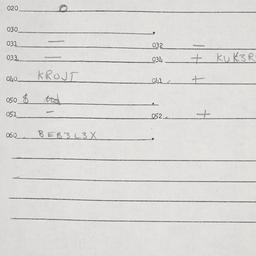 020 o
030
031 — 032 —
033 — 034 + KUK3R
040 KROJT 041 +
050 8
051 - 052 +
060 BEB3L3X